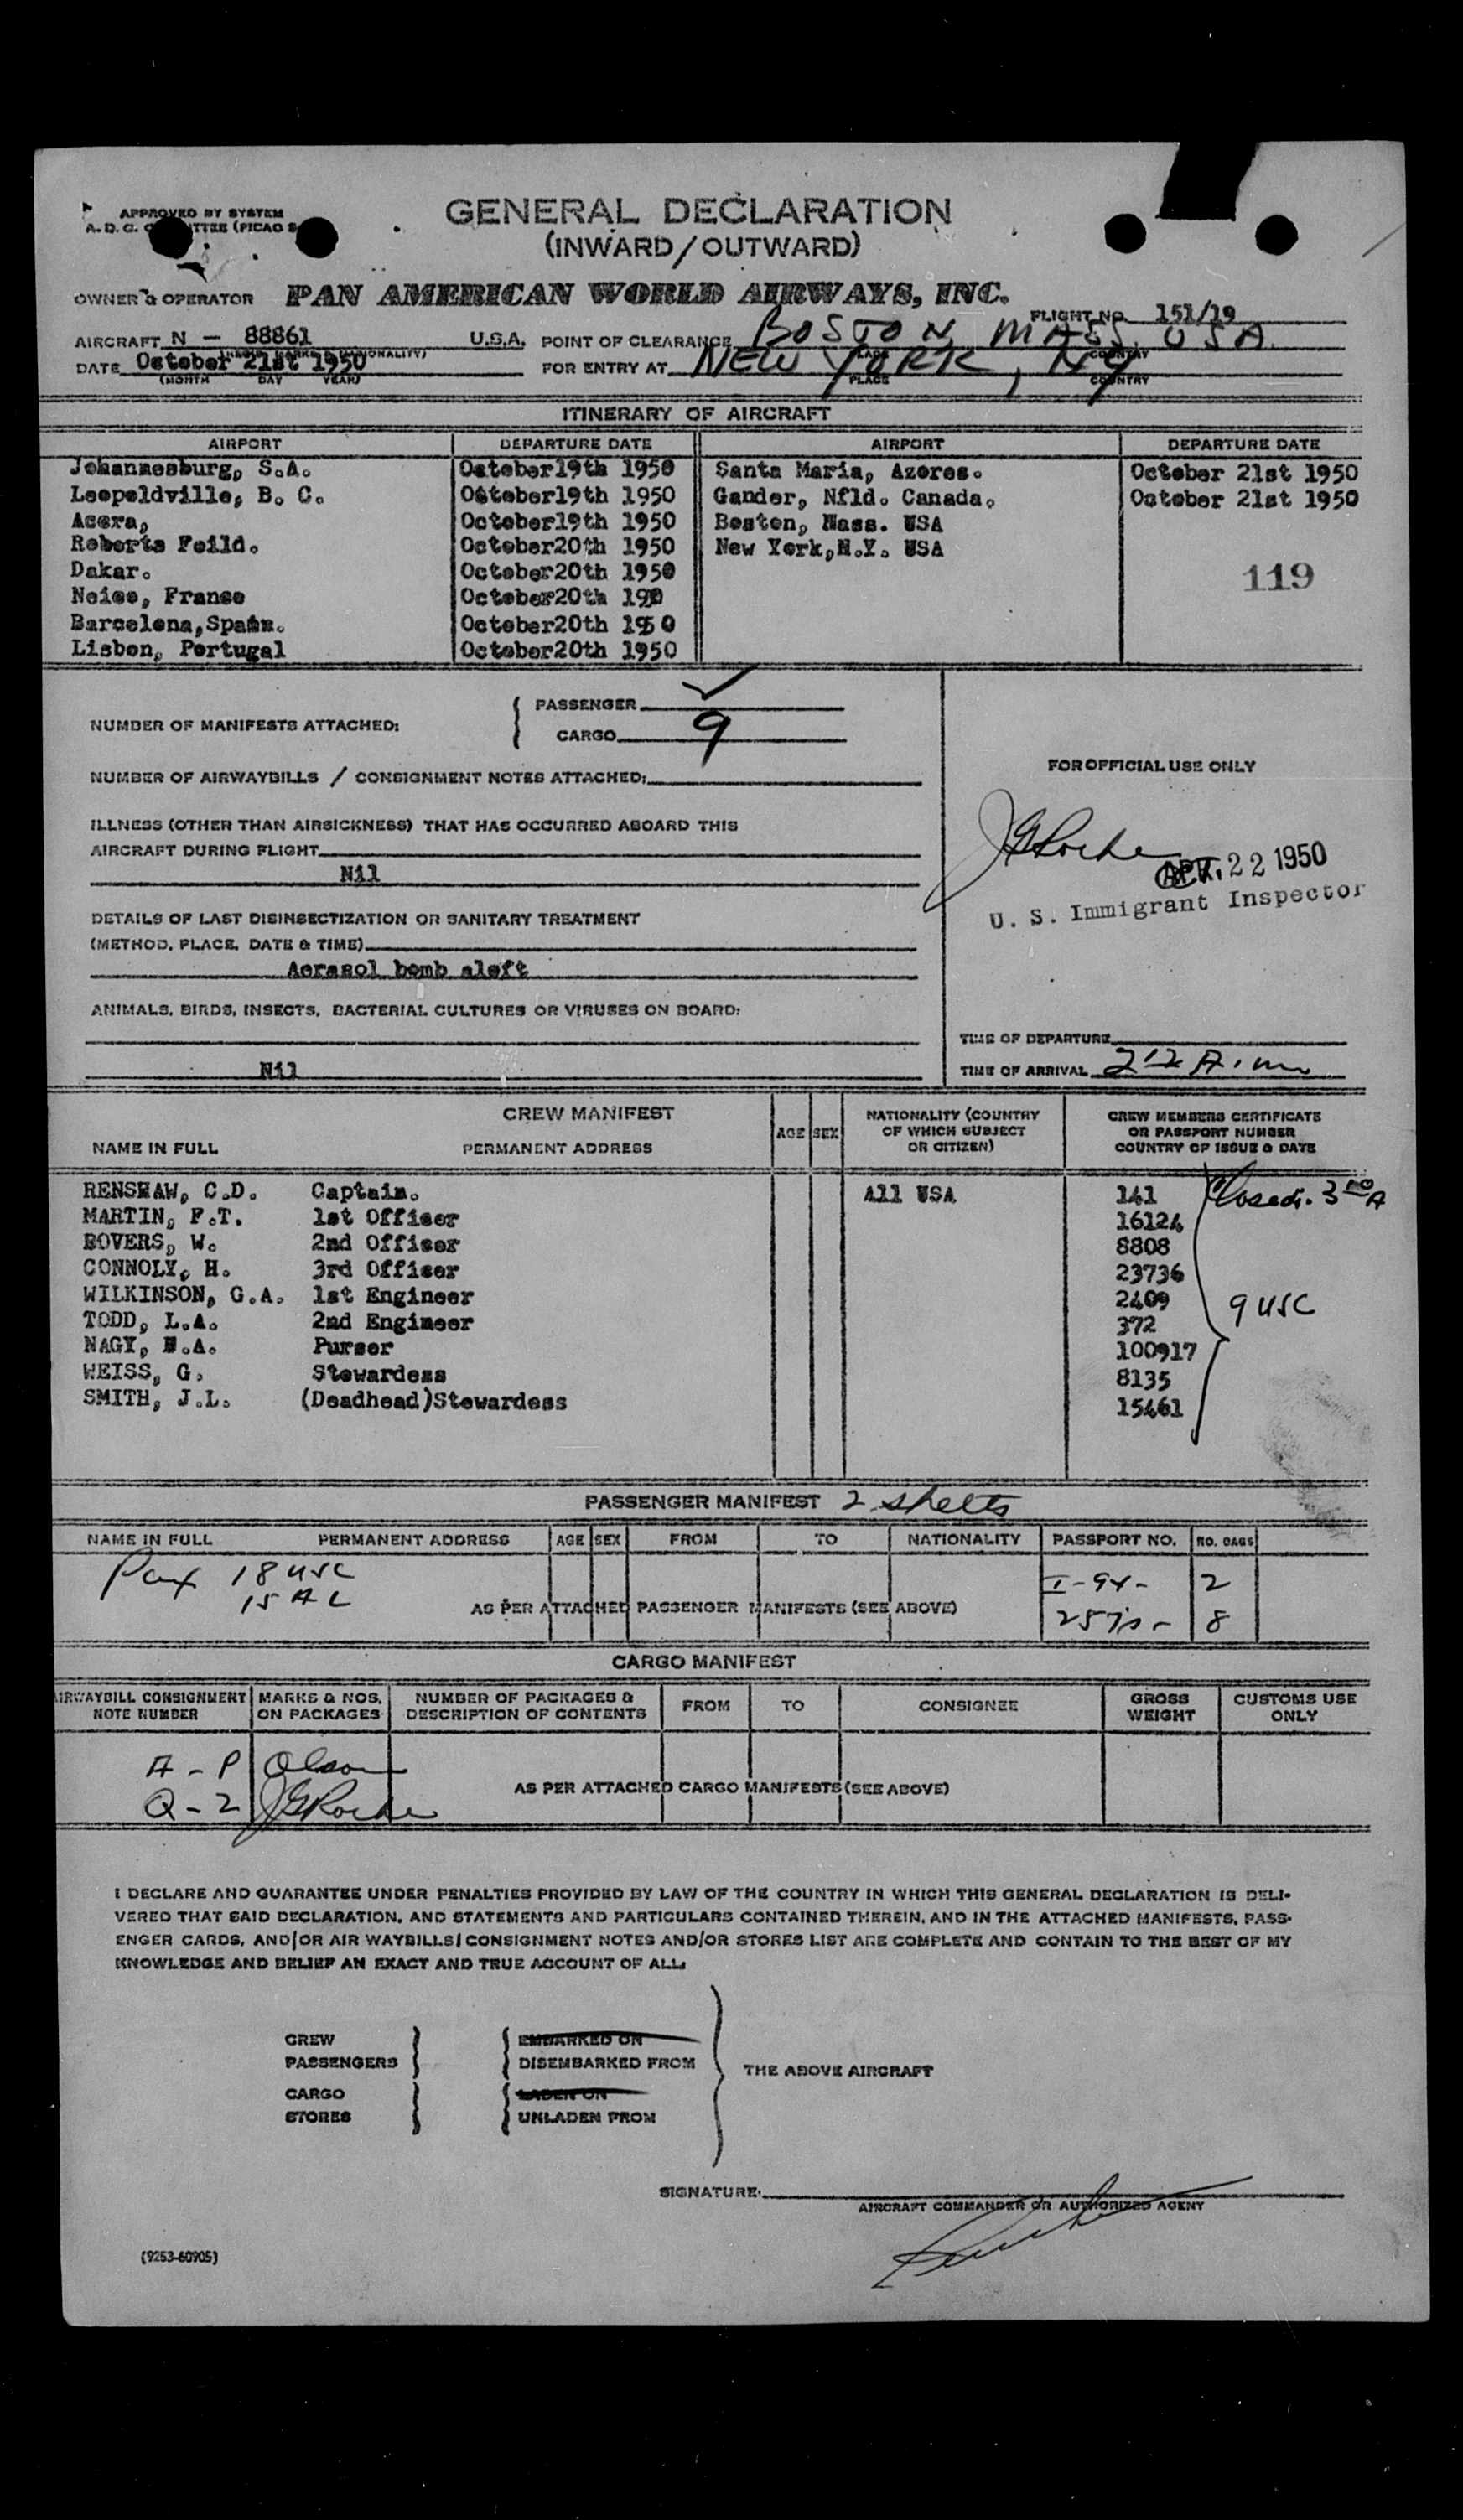 APPROVED BY SYSTEM
A. D. C. (PICAO
GENERAL DECLARATION
(INWARD/OUTWARD)
OWNER & OPERATOR PAN AMERICAN WORLD AIRWAYS, INC.
FLIGHT NO. 151/19
AIRCRAFT N - 88861 U.S.A. POINT OF CLEARANCE BOSTON, MASS. USA
DATE October 21st 1950 FOR ENTRY AT NEW YORK, NY
(MONTH DAY YEAR) PLACE COUNTRY
ITINERARY OF AIRCRAFT
AIRPORT DEPARTURE DATE AIRPORT DEPARTURE DATE
Johannesburg, S.A. October19th 1950 Santa Maria, Azores. October 21st 1950
Leopoldville, B. C. October19th 1950 Gander, Nfld. Canada. October 21st 1950
Accra, October19th 1950 Boston, Mass. USA
Roberts Feild. October20th 1950 New York,N.Y. USA
Dakar. October20th 1950 119
Neice, France October20th 1950
Barcelona,Spain. October20th 1950
Lisbon, Portugal October20th 1950
NUMBER OF MANIFESTS ATTACHED: PASSENGER
CARGO 9
NUMBER OF AIRWAYBILLS / CONSIGNMENT NOTES ATTACHED:
FOR OFFICIAL USE ONLY
ILLNESS (OTHER THAN AIRSICKNESS) THAT HAS OCCURRED ABOARD THIS
AIRCRAFT DURING FLIGHT
Nil
JGRoche
OCT. 22 1950
U. S. Immigrant Inspector
DETAILS OF LAST DISINSECTIZATION OR SANITARY TREATMENT
(METHOD, PLACE, DATE & TIME)
Aerasol bomb aloft
ANIMALS, BIRDS, INSECTS, BACTERIAL CULTURES OR VIRUSES ON BOARD:
Nil
TIME OF DEPARTURE
TIME OF ARRIVAL 212 A.m
CREW MANIFEST
NAME IN FULL PERMANENT ADDRESS AGE SEX NATIONALITY (COUNTRY OF WHICH SUBJECT OR CITIZEN) CREW MEMBERS CERTIFICATE OR PASSPORT NUMBER COUNTRY OF ISSUE & DATE
RENSHAW, C.D. Captain. All USA 141 Closed. 3 00 A
MARTIN, F.T. 1st Officer 16124
BOVERS, W. 2nd Officer 8808
CONNOLY, H. 3rd Officer 23736
WILKINSON, G.A. 1st Engineer 2409 9 USC
TODD, L.A. 2nd Engineer 372
NAGY, .A. Purser 100917
WEISS, G. Stewardess 8135
SMITH, J.L. (Deadhead)Stewardess 15461
PASSENGER MANIFEST 2 sheets
NAME IN FULL PERMANENT ADDRESS AGE SEX FROM TO NATIONALITY PASSPORT NO. NO. BAGS
Pax 18 USC I-94- 2
15 AL 257 - 8
AS PER ATTACHED PASSENGER MANIFESTS (SEE ABOVE)
CARGO MANIFEST
AIRWAYBILL CONSIGNMENT NOTE NUMBER MARKS & NOS. ON PACKAGES NUMBER OF PACKAGES & DESCRIPTION OF CONTENTS FROM TO CONSIGNEE GROSS WEIGHT CUSTOMS USE ONLY
A - P Olson
Q - 2 JGRoche
AS PER ATTACHED CARGO MANIFESTS (SEE ABOVE)
I DECLARE AND GUARANTEE UNDER PENALTIES PROVIDED BY LAW OF THE COUNTRY IN WHICH THIS GENERAL DECLARATION IS DELI-
VERED THAT SAID DECLARATION, AND STATEMENTS AND PARTICULARS CONTAINED THEREIN, AND IN THE ATTACHED MANIFESTS, PASS-
ENGER CARDS, AND/OR AIR WAYBILLS/CONSIGNMENT NOTES AND/OR STORES LIST ARE COMPLETE AND CONTAIN TO THE BEST OF MY
KNOWLEDGE AND BELIEF AN EXACT AND TRUE ACCOUNT OF ALL:
CREW EMBARKED ON
PASSENGERS DISEMBARKED FROM
THE ABOVE AIRCRAFT
CARGO LADEN ON
STORES UNLADEN FROM
SIGNATURE:
AIRCRAFT COMMANDER OR AUTHORIZED AGENT
(9253-60905)